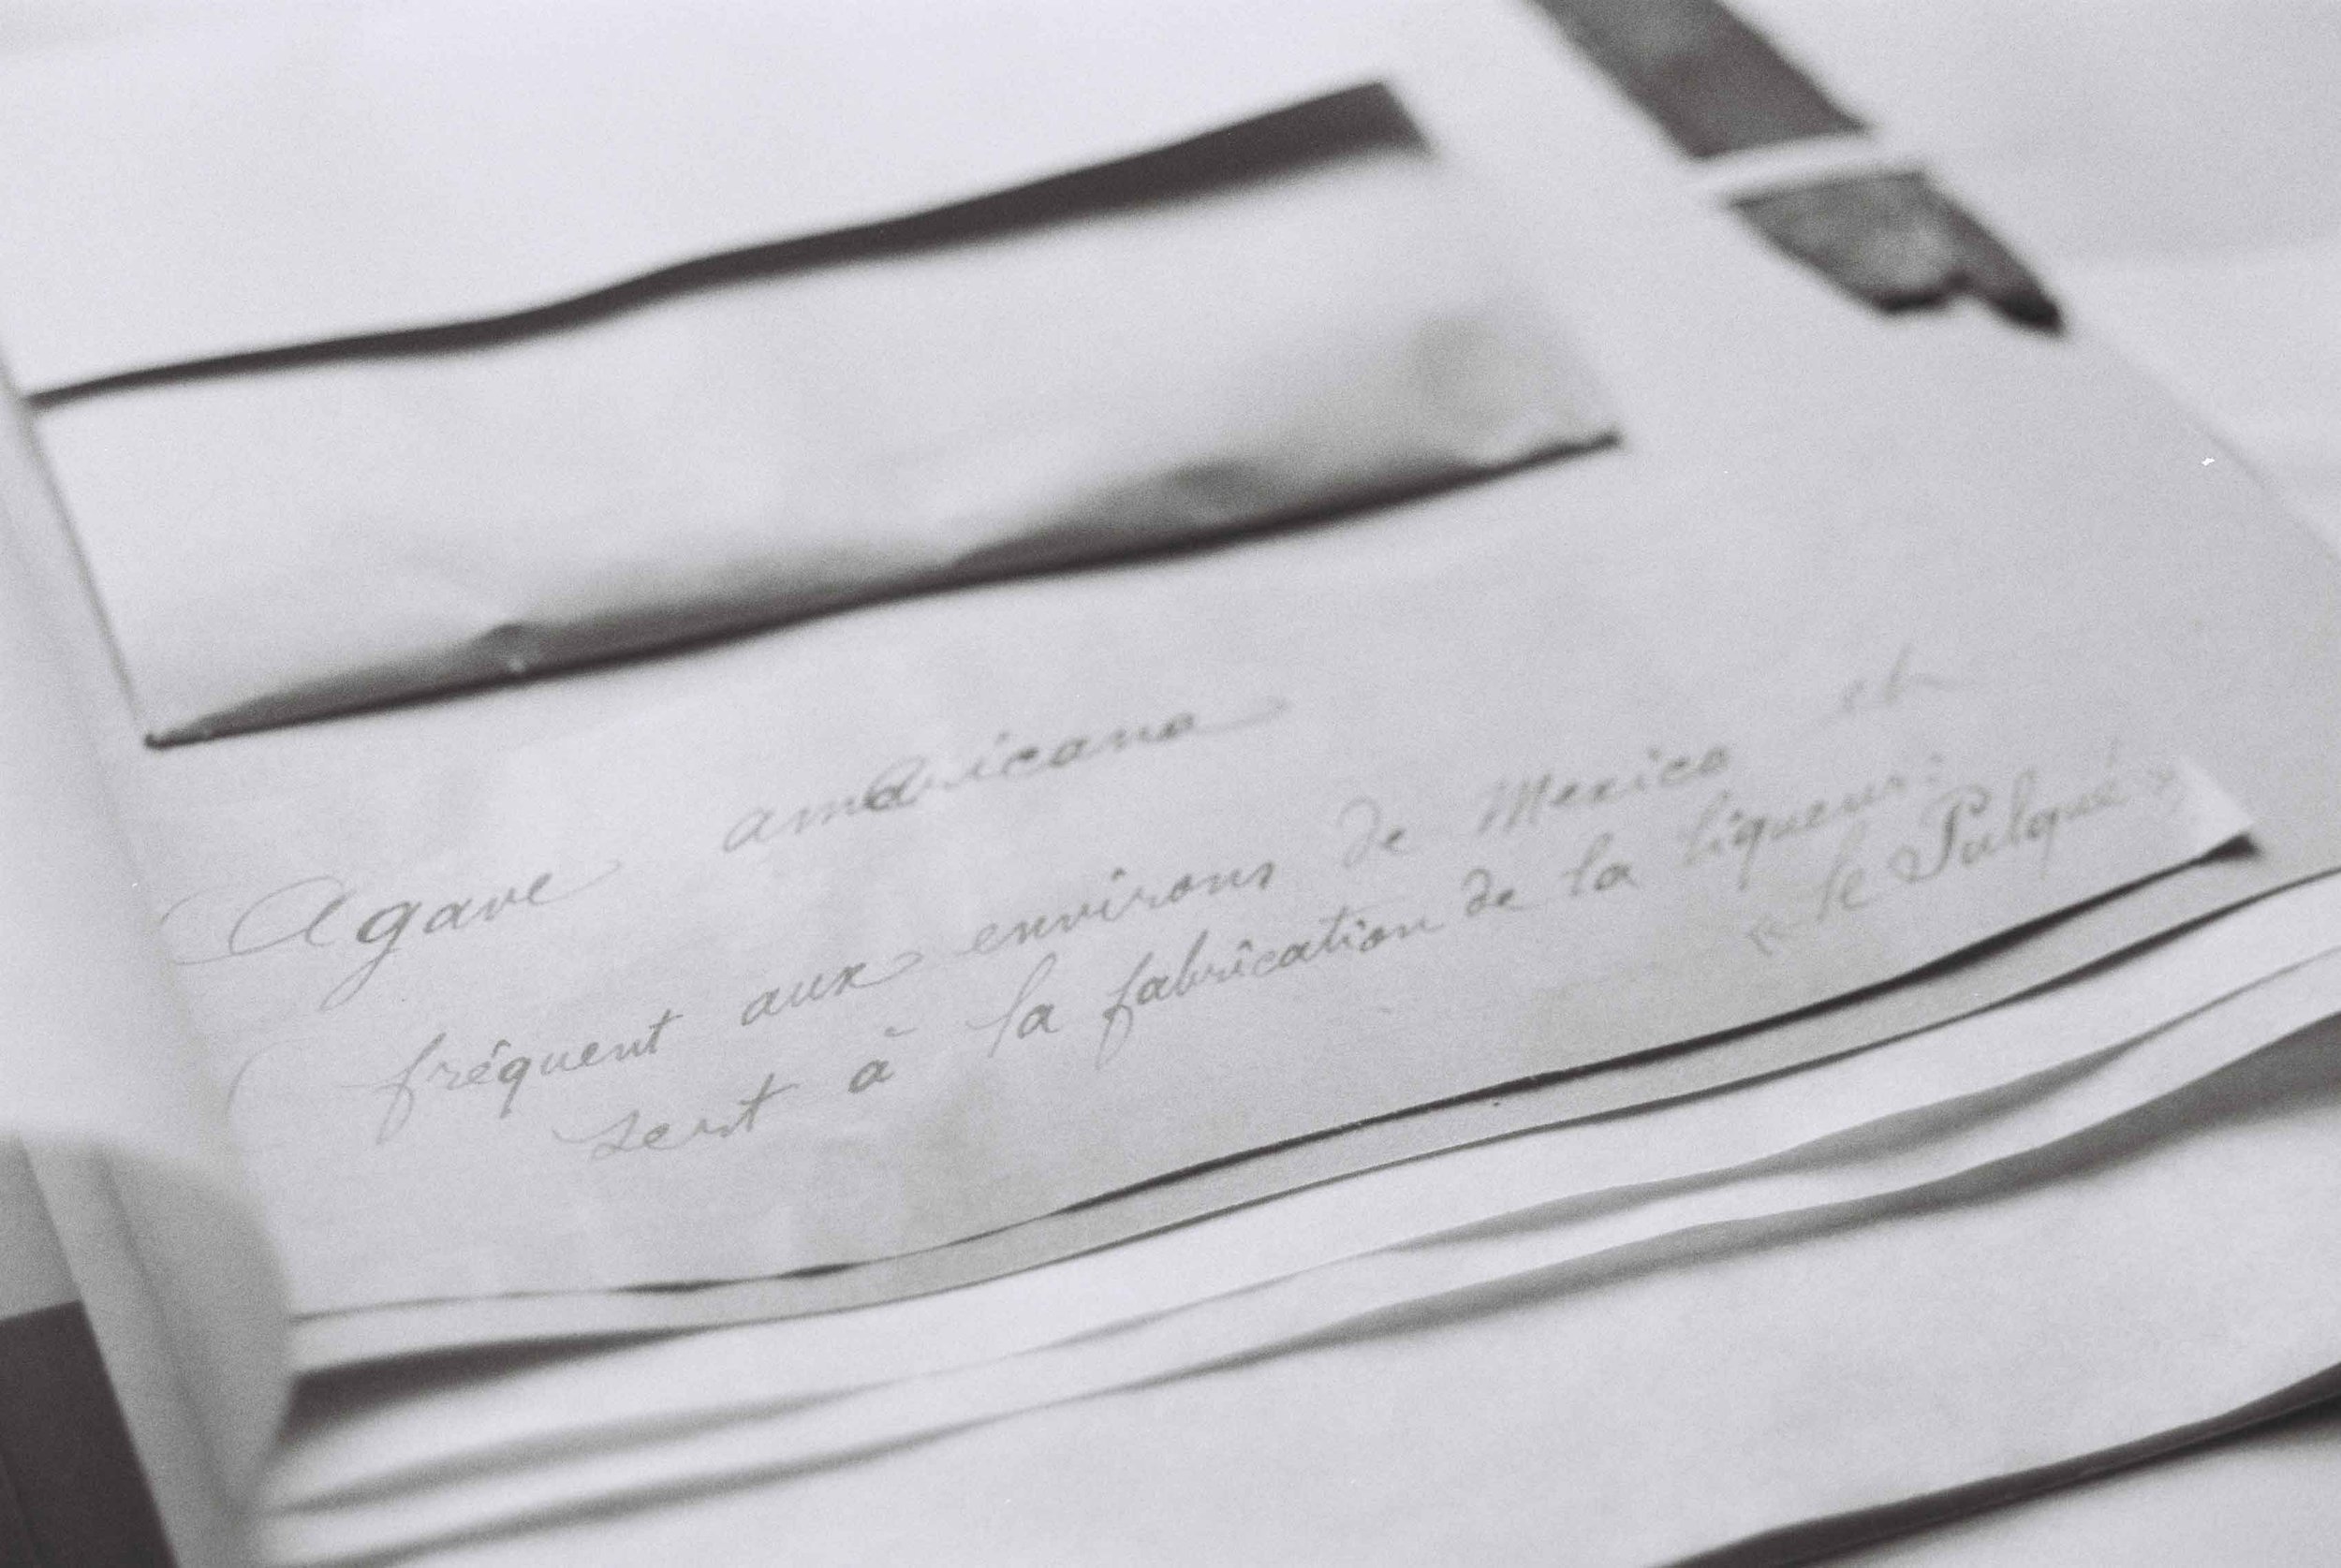 Agave americana
fréquent aux environs de Mexico et
sert à la fabrication de la liqueur:
« le Pulqué »